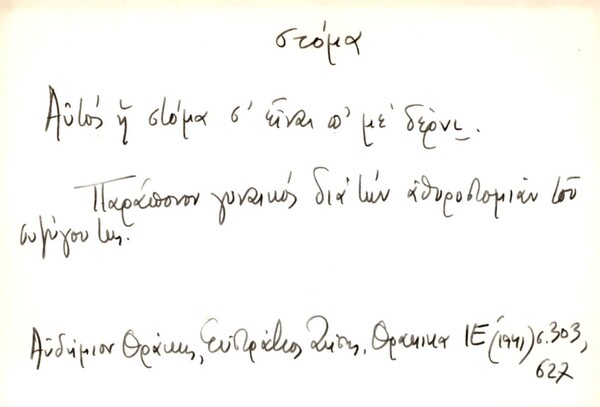 στόμα
Αὐτός ἤ στόμα σ' εἶναι π' μέ δέρνι.
Παράπονον γυναικός διά τήν ἀθυροστομίαν τοῦ
συζύγου της.
Αὐδήμιον Θράκης, Εὐστράτιος Ζήσης, Θρακικα ΙΕ΄ (1941) σ. 303,
627